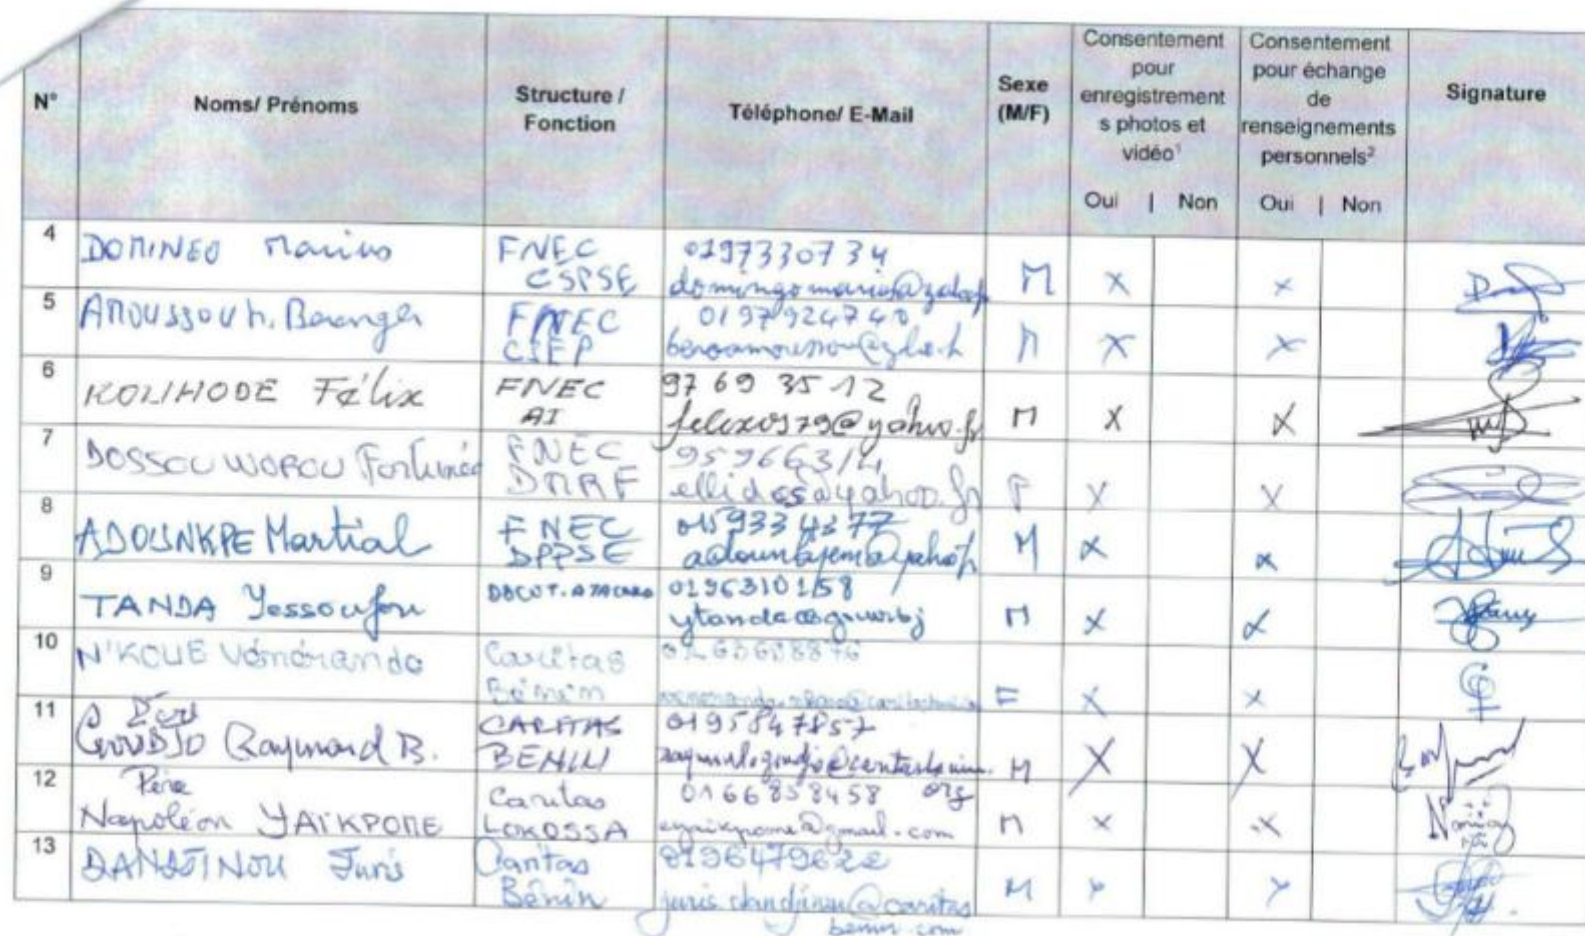 N° Noms/ Prénoms Structure / Fonction Téléphone/ E-Mail Sexe (M/F) Consentement pour enregistrement s photos et vidéo¹ Consentement pour échange de renseignements personnels² Signature
Oui | Non Oui | Non
4 DOMINGO Marius FNEC CSPSE 0197330734 M X X
5 AMOUSSOU h. Beranger FNEC CIEP 0197924740 M X X
6 KOLIHODE Félix FNEC AI 97 69 35 12 M X X
7 DOSSOU WOROU Fortunée FNEC DMRF F X X
8 ADOUNKPE Martial FNEC DPPSE 0159334377 M X X
9 TANDA Yessoufou 0196310158 M X X
10 N'KOUE Vénéranda Caritas Bénin F X X
11 GOUDJO Raymond B. CARITAS BENIN 0195847857 M X X
12 Père Napoléon YAÏKPONE Caritas LOKOSSA 0166858458 M X X
13 DANDJINOU Juris Caritas Bénin 0196479622 juris.dandjinou@caritas benin.com M X X